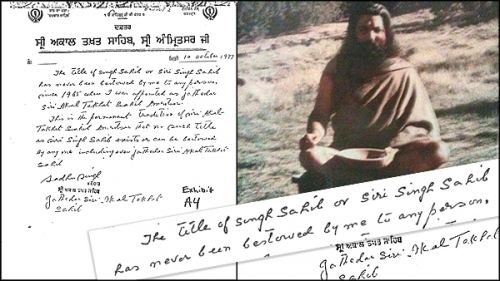 ਦਫ਼ਤਰ
ਸ੍ਰੀ ਅਕਾਲ ਤਖ਼ਤ ਸਾਹਿਬ, ਸ੍ਰੀ ਅੰਮ੍ਰਿਤਸਰ ਜੀ
ਮਿਤੀ 10 October 1977
The title of Singh Sahib or Siri Singh Sahib
has never been bestowed by me to any person,
since 1965 when I was appointed as Jathedar
Siri Akal Takhat Sahib Amritsar.
This is the permanent tradition of Siri Akal
Takhat Sahib Amritsar that no such title
as Siri Singh Sahib exists or can be bestowed
by any one including even Jathedar Siri Akal Takhat
Sahib
Sadhu Singh
ਸ੍ਰੀ ਅਕਾਲ ਤਖਤ ਸਾਹਿਬ
Jathedar Siri Akal Takhat
Sahib
Exhibit
A4
The title of Singh Sahib or Siri Singh Sahib
has never been bestowed by me to any person,
ਸ੍ਰੀ ਅਕਾਲ ਤਖਤ ਸਾਹਿਬ
Jathedar Siri Akal Takhat
Sahib